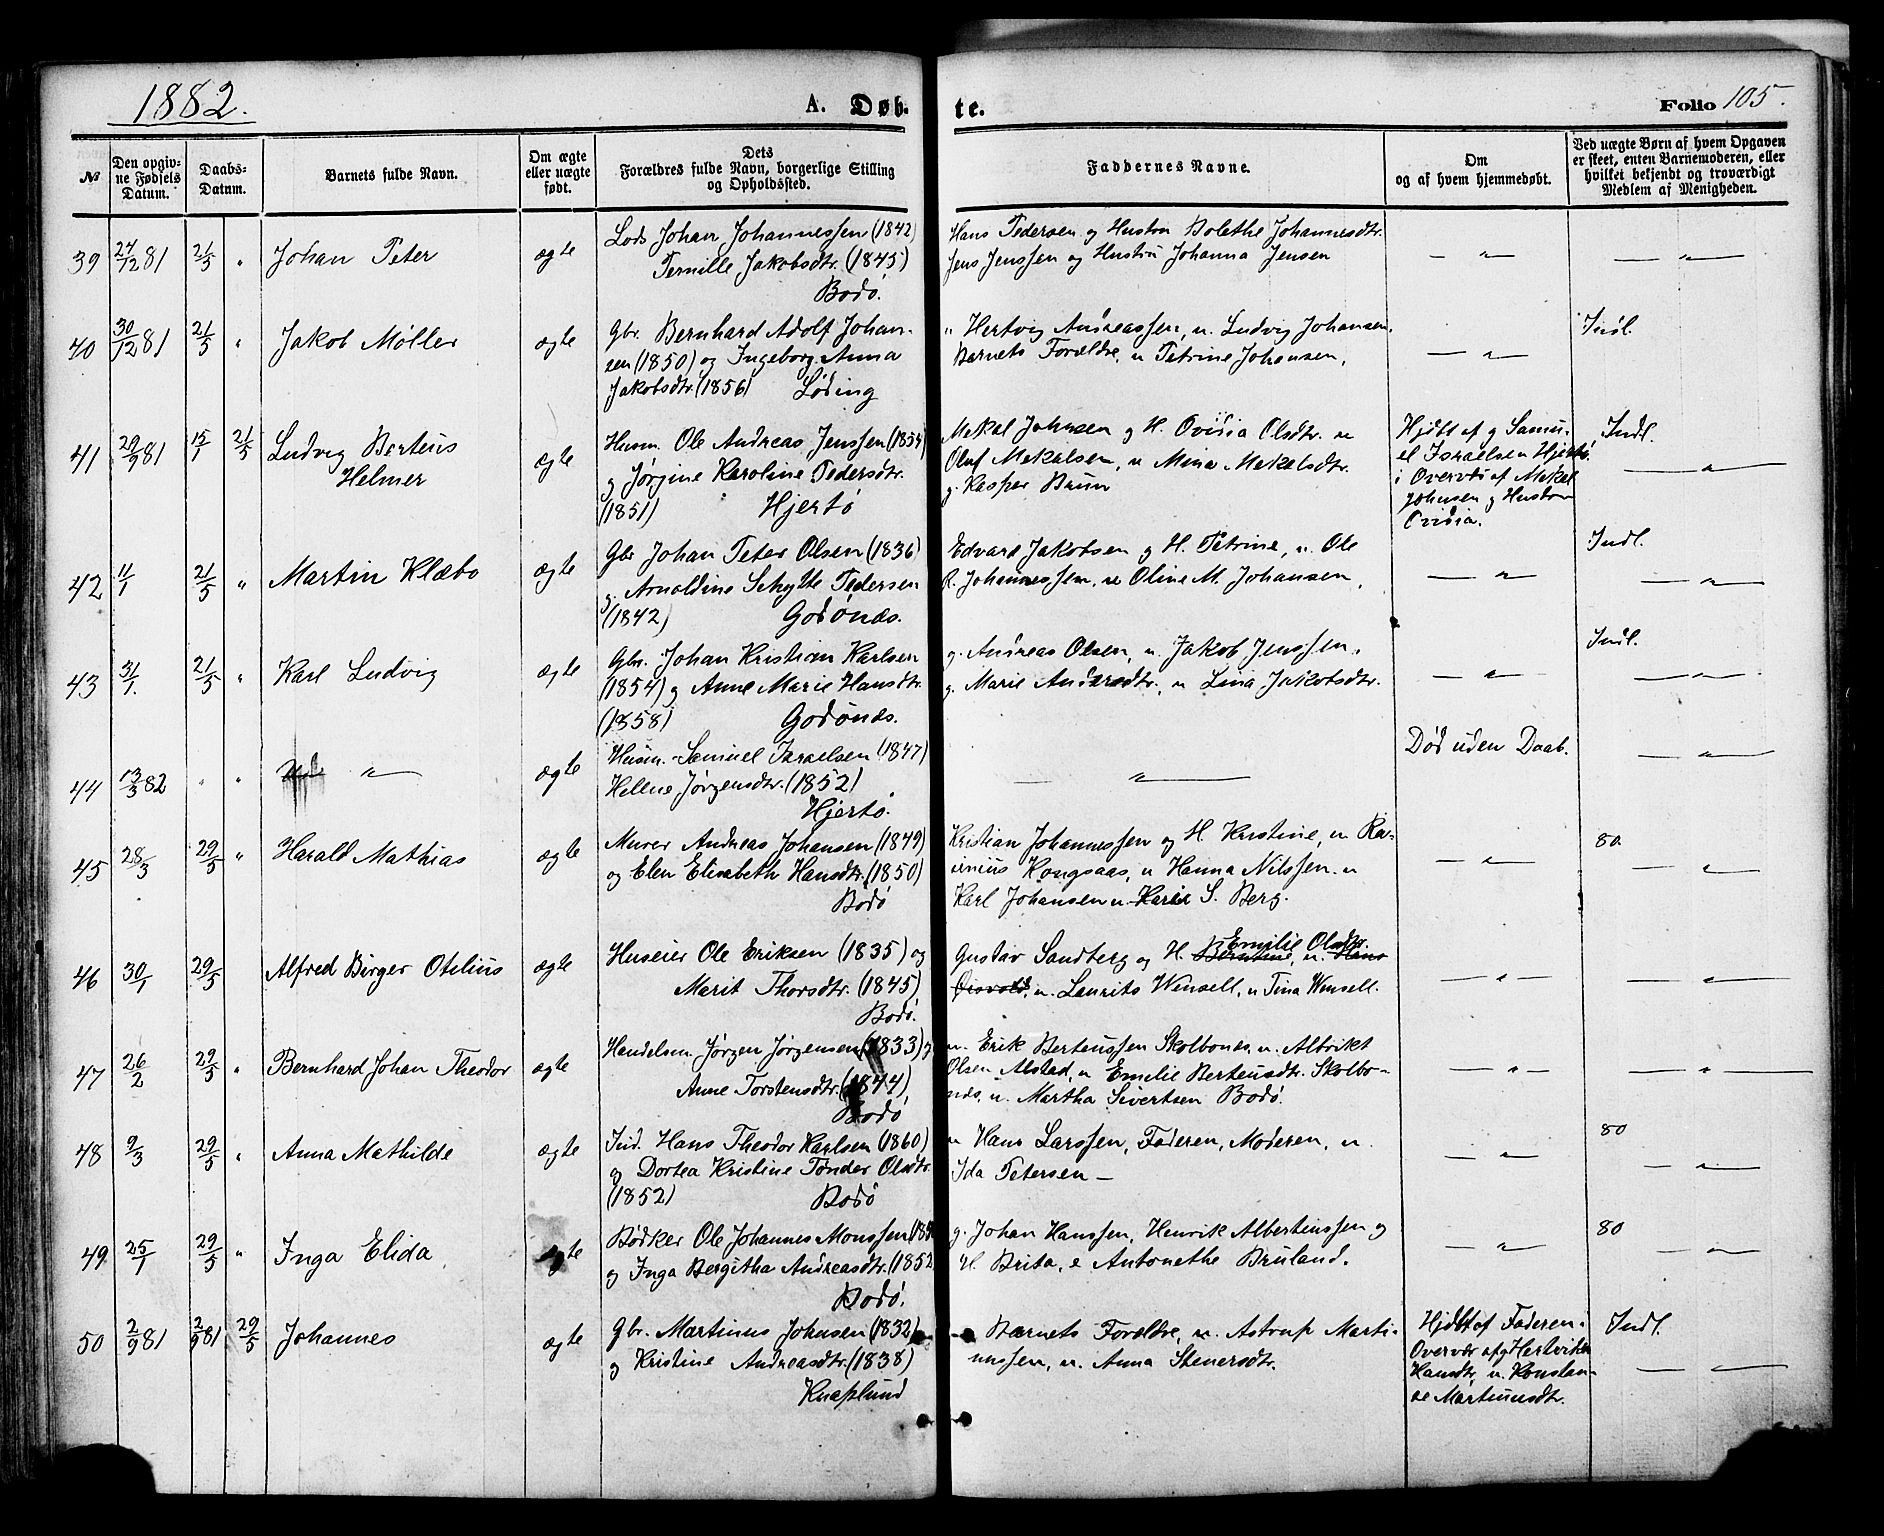 1882.
A. Døb-te.
Folio 105.
№
Den opgivne Fødsels Datum.
Daabs-Datum.
Barnets fulde Navn.
Om ægte eller uægte født.
Dets Forældres fulde Navn, borgerlige Stilling og Opholdssted.
Faddernes Navne.
Om og af hvem hjemmedøbt.
Ved uægte Børn af hvem Opgaven er skeet, enten Barnemoderen, eller hvilket bekjendt og troværdigt Medlem af Menigheden.
39 27/12 81 21/5 " Johan Peter ægte
Lods Johan Johannessen (1842)
Pernille Jakobsdtr. (1845)
Bodø.
Hans Pedersen og Hustru Bolethe Johannesdtr.
Jens Jenssen og Hustru Johanna Jensen
— " — — " —
40 30/12 81 21/5 " Jakob Møller ægte
Gbr. Bernhard Adolf Johan-
sen (1850) og Ingeborg Anna
Jakobsdtr. (1856) Løding
u. Hertvig Andreassen, u. Ludvig Johansen.
Barnets Forældre, u Petrine Johansen,
— " — Indl.
41 29/9 81 15/1 21/5 Ludvig Berteus
Helmer ægte
Husm. Ole Andreas Jenssen (1854)
og Jørgine Karoline Pedersdtr.
(1851) Hjertø
Mekal Johnsen og H. Ovidia Olsdtr. u
Oluf Mekalsen, u Mina Mekelsdtr.
g. Kasper Brun
Hjdbt af g Samu-
el Israelsen Hjertø
i Overvær af Mekel
Johnsen og Hustru
Ovidia.
Indl.
— " —
42 11/1 21/5 " Martin Klæbo ægte
Gbr Johan Peter Olsen (1836)
g. Arnoldine Schytte Pedersen
(1842) Godønes.
Edvard Jakobsen og H. Petrine, u. Ole
R. Johannessen, u Oline M. Johansen,
— " — Indl.
— " —
43 3/1. 21/5 " Karl Ludvig ægte
Gbr. Johan Kristian Karlsen
(1854) g Anne Marie Hansdtr.
(1858) Godønes.
g. Andreas Olsen, u. Jakob Jenssen,
g. Marie Andersdtr., u Lina Jakobsdtr.
— " — Indl.
— " —
44 13/3 82 " " — " — ægte
Husm. Samuel Israelsen (1847)
Helene Jørgensdtr. (1852)
Hjertø.
— " —
Død uden Daab.
— " —
45 28/3 29/5 " Harald Mathias ægte
Murer Andreas Johansen (1849)
og Elen Elisabeth Hansdtr. (1850)
Bodø
Kristian Johannessen og H Kristine, u Ra-
sinius Kongsaas, u Hanna Nilssen u
Karl Johansen u. Karie S. Berg.
— " — 80.
— " —
46 30/1 29/5 Alfred Birger Otelius ægte
Huseier Ole Eriksen (1835) og
Marit Thorsdtr. (1845)
Bodø.
Emilie Olsdtr.
Gustav Sandberg og H. Berntine, u. Hans
u. Laurits Wensell, u Tina Wensell.
— " — — " —
47 26/2 29/5 " Bernhard Johan Theodor ægte
Handelsm. Jørgen Jørgensen (1833) g
Anne Torstensdtr. (1844)
Bodø
u. Erik Berteussen Skolbones, u. Albrikt
Olsen Alstad, u Emelie Berteusdtr. Skolbo-
nes, u. Martha Sivertsen Bodø.
— " — — " —
48 9/3 29/5 " Anna Mathilde ægte
Ind. Hans Theodor Karlsen (1860)
og Dortea Kristine Tønder Olsdtr.
(1852) Bodø
u Hans Larssen, Faderen, Moderen, u.
Ida Petersen —
— " — 80
— " —
49 25/1 29/5 " Inga Elida ægte
Bødker Ole Johannes Monssen
og Inga Bergitha Andreasdtr. (1852
Bodø.
g. Johan Hanssen, Henrik Albertinssen og
H. Brita, e Antonethe Bruland.
— " — 80
— " —
50 2/9 81 2/9 81 29/5 Johannes ægte
Gbr. Martinus Johnsen (1832)
og Kristine Andreasdtr. (1838)
Knaplund
Barnets Forældre, u. Astrup Marti-
nussen, u. Anna Stenersdtr.
Hjdbt af Faderen i
Overvær af g Hertviken
Hansdtr, u. Konstan-
se Martinusdtr.
Indl.
— " —